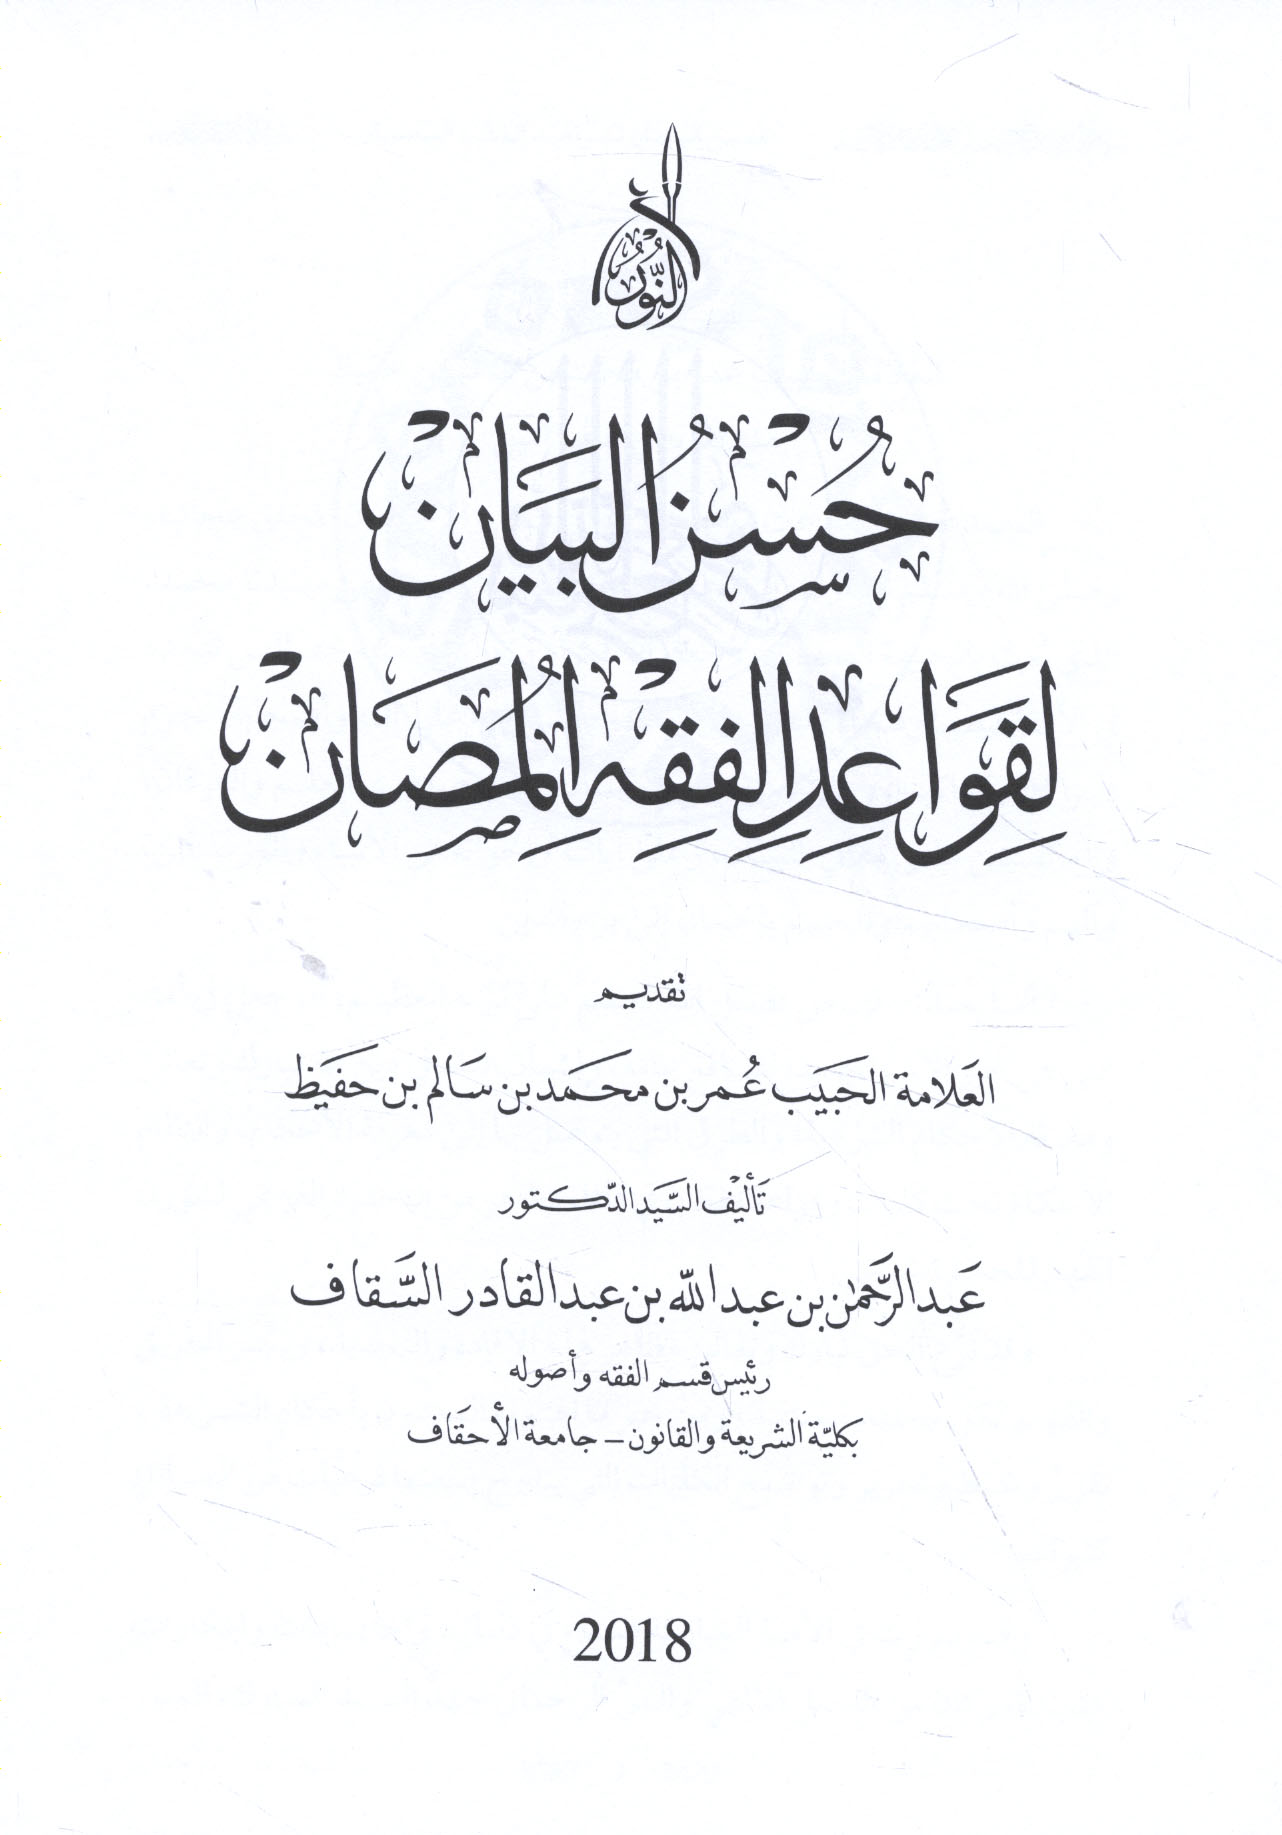 النُّور
حُسْنُ البَيَانْ
لِقَوَاعِدِ الفِقْهِ المُصَانْ
تقديم
العَلامة الحَبيَب عُمر بن محمَد بن سَالم بن حَفيَظ
تَأليْف السَّيَد الدّكتور
عَبد الرَّحمٰن بن عبد اللّه بن عبد القادر السَّقاف
رئيس قسم الفقه وأصوله
بكليّة الشريعة والقانون – جامعة الأحقَاف
2018